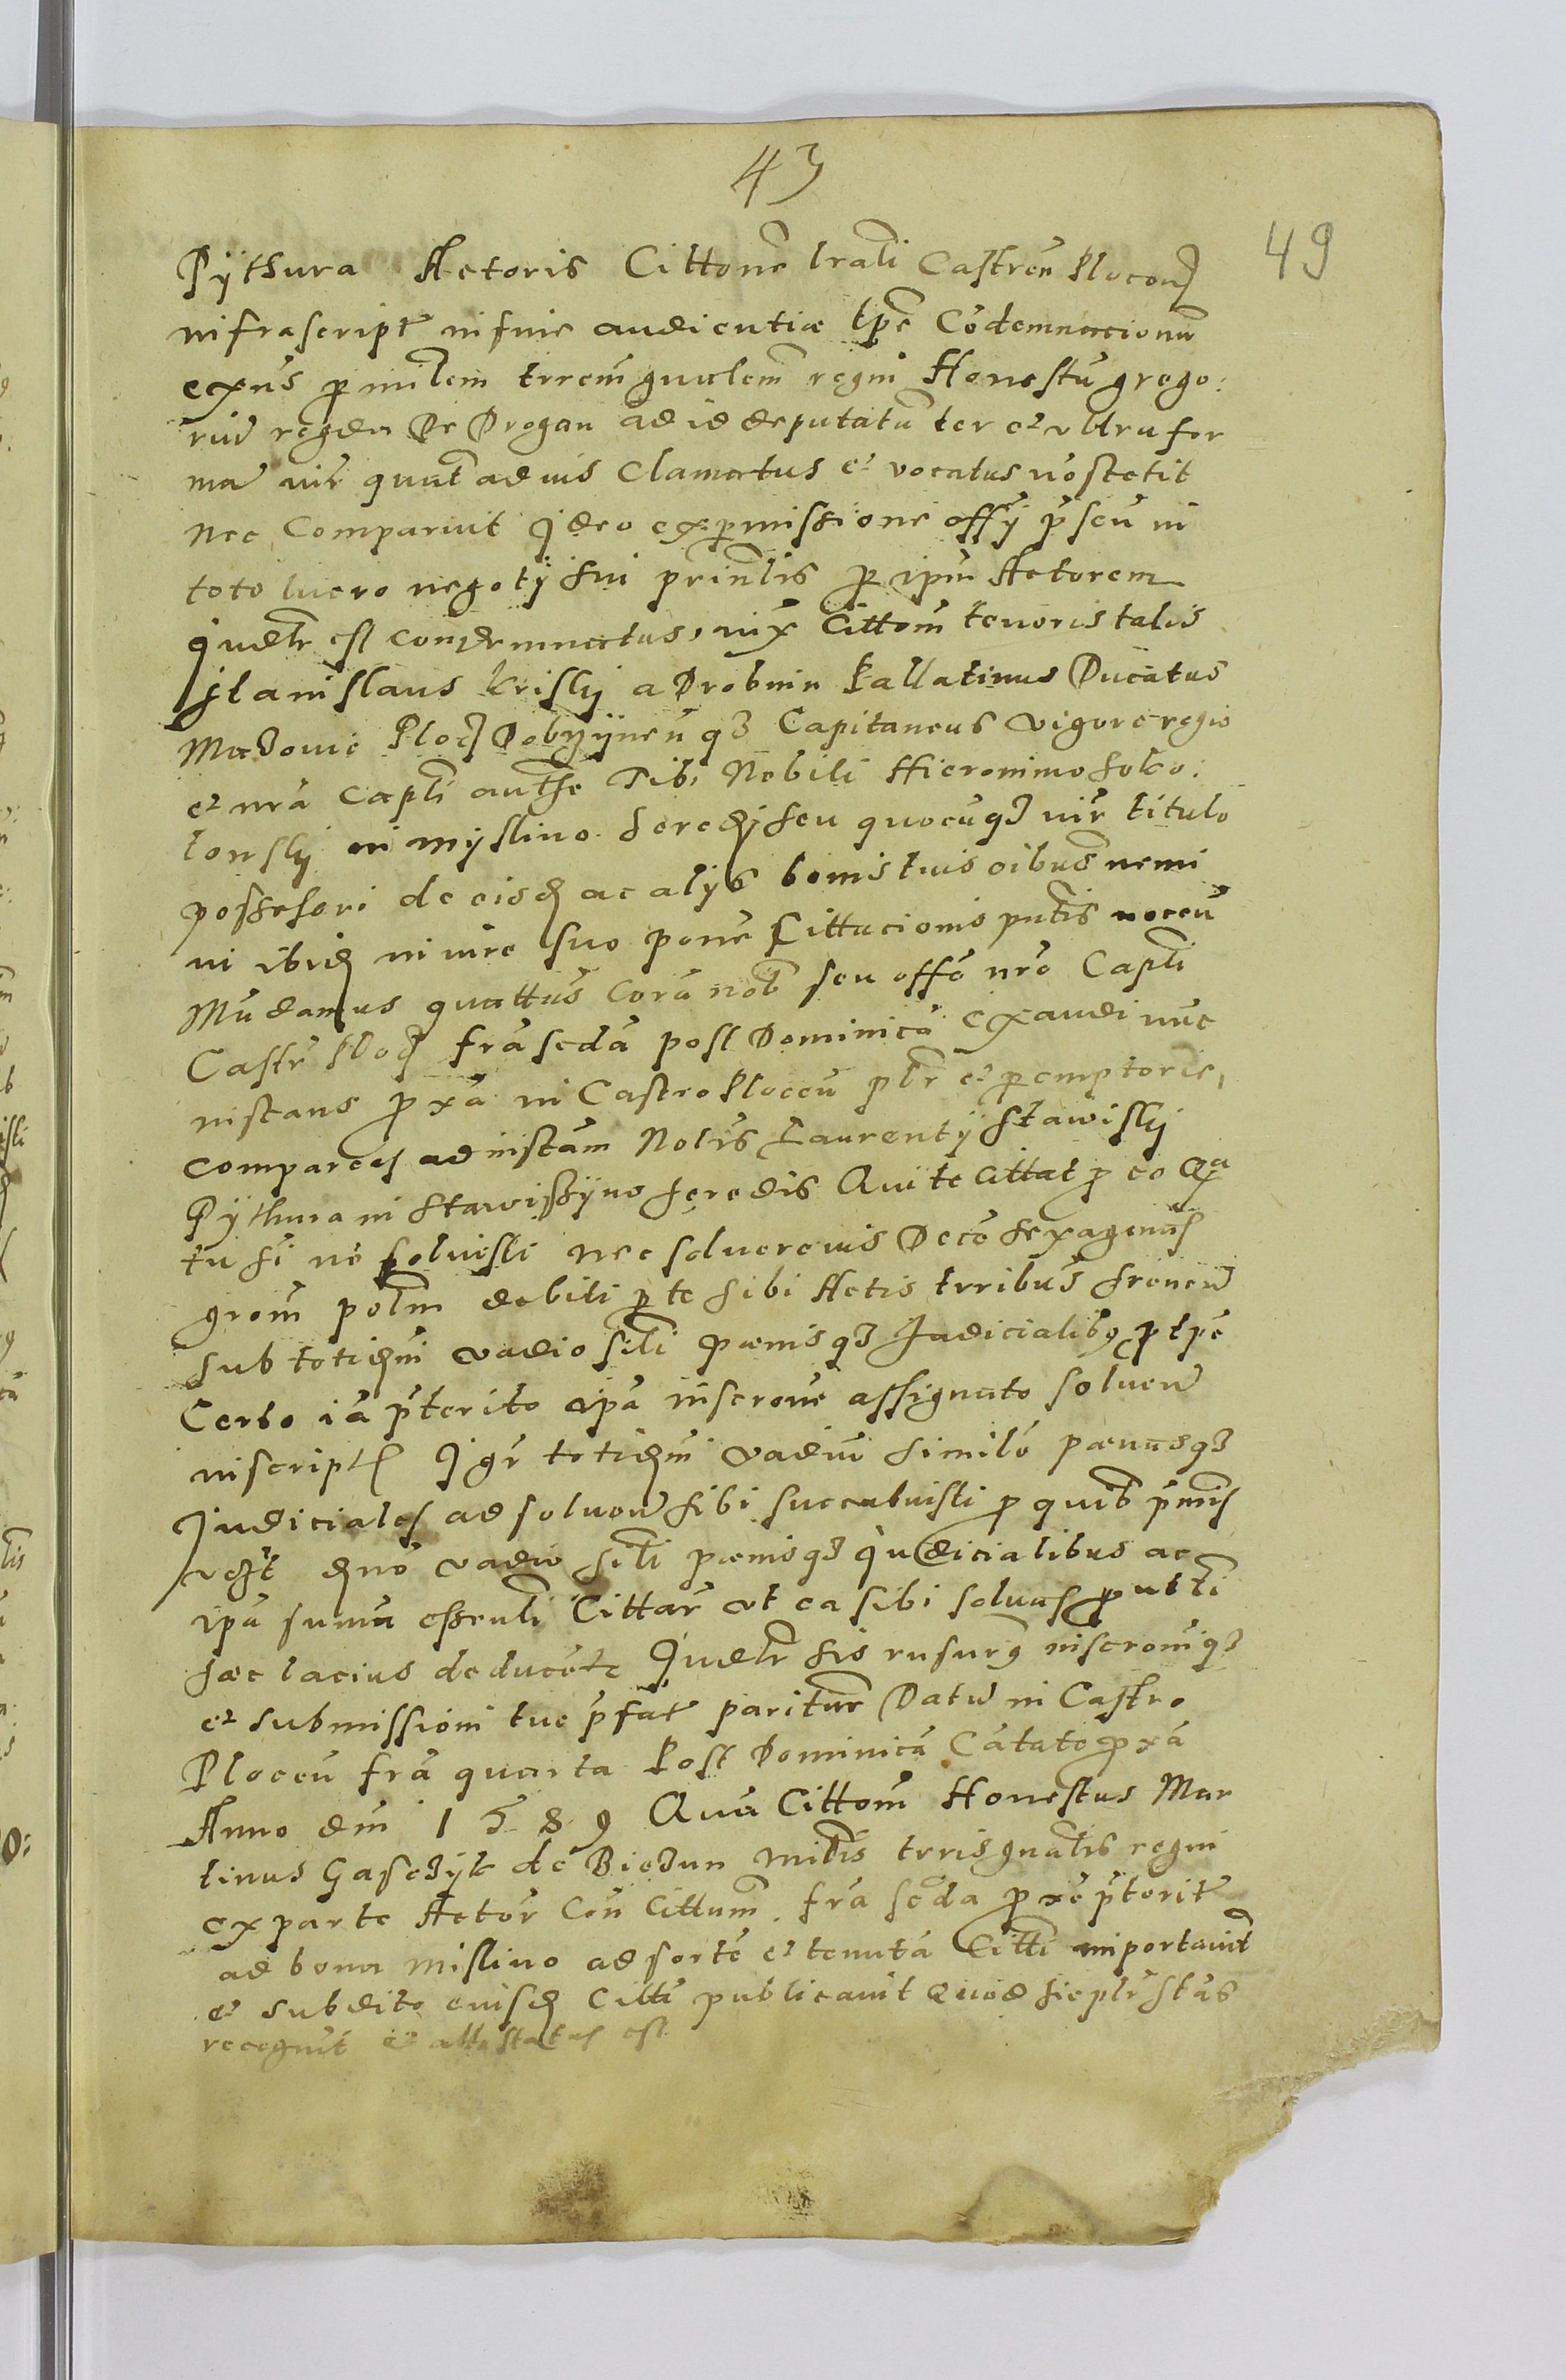 43
49
Pÿthura Actoris Cittone lrali Castren Plocen
infrascript in fine audientiæ tpe Codemnacionu
exns p milem trrem gnalem regni Honestu grego:
riu regda De Drogan ad id deputatu ter et ultra for
ma iur quat ad ius Clamatus et vocatus no stetit
nec Comparuit Ideo ex pmissione offÿ pseu in
toto lucro negotÿ sui prinlis p ipm Actorem
Iudlr est condemnatus, vix Cittom tenoris talis
Stanislaus krisky a Drobnin Pallatinus Ducatus
Mazouie Ploc Dobrzÿnen qz Capitaneus vigore regio
et nra Capli authe Tibi Nobili Hieronimo
in myslino heredi seu quocuqz iur titulo
possessori de eisd ac alÿs bonis tuis oibus nemi
ni ibid in iure suo pone Cittacionis pntis nocen
Mudamus quattus Cora nob seu offo nro Capli
Castr Ploc fra seda post Dominica exaudi nuc
instans pxa in Castro Plocen plr et pemptorie,
compareas ad instam Nobis Laurentÿ Stawisky
Pÿthura in Stawiskÿno heredis Qui te Cittat p eo qa
tu si no soluisti nec soluere vis Dece sexagenas
grom polm debiti p te sibi Actis trribus
sub totidem vadio sili pænisqz Iudicialibus p tpe
Certo ia pterito ipa inscrone assignato soluen
inscript Igr totidem vadiu simile pænasqz
Iudiciales ad soluen sibi succubuisti p quib pmis
vezt dno vadio sili pænisqz iudicialibus ac
ipa suma essenli Cittar ut ea sibi soluas put tibi
hæc lacius deducetr Iudlr his rusurus inscroniqz
et submissioni tue pfat pariturs Datu in Castro
Plocen fra quarta Post Dominica Catate pxa
Anno dni 1589 Qua Cittom Honestus Mar
tinus Gasczÿk de Biezun milis trris gnalis regni
ex parte Actor Con Cittum fra seda pxe pterit
ad bona mislino ad sorte et tenuta Citti importauit
et subdito euisd Citti publicauit Quod sic plr stas
recognit et attestatus est